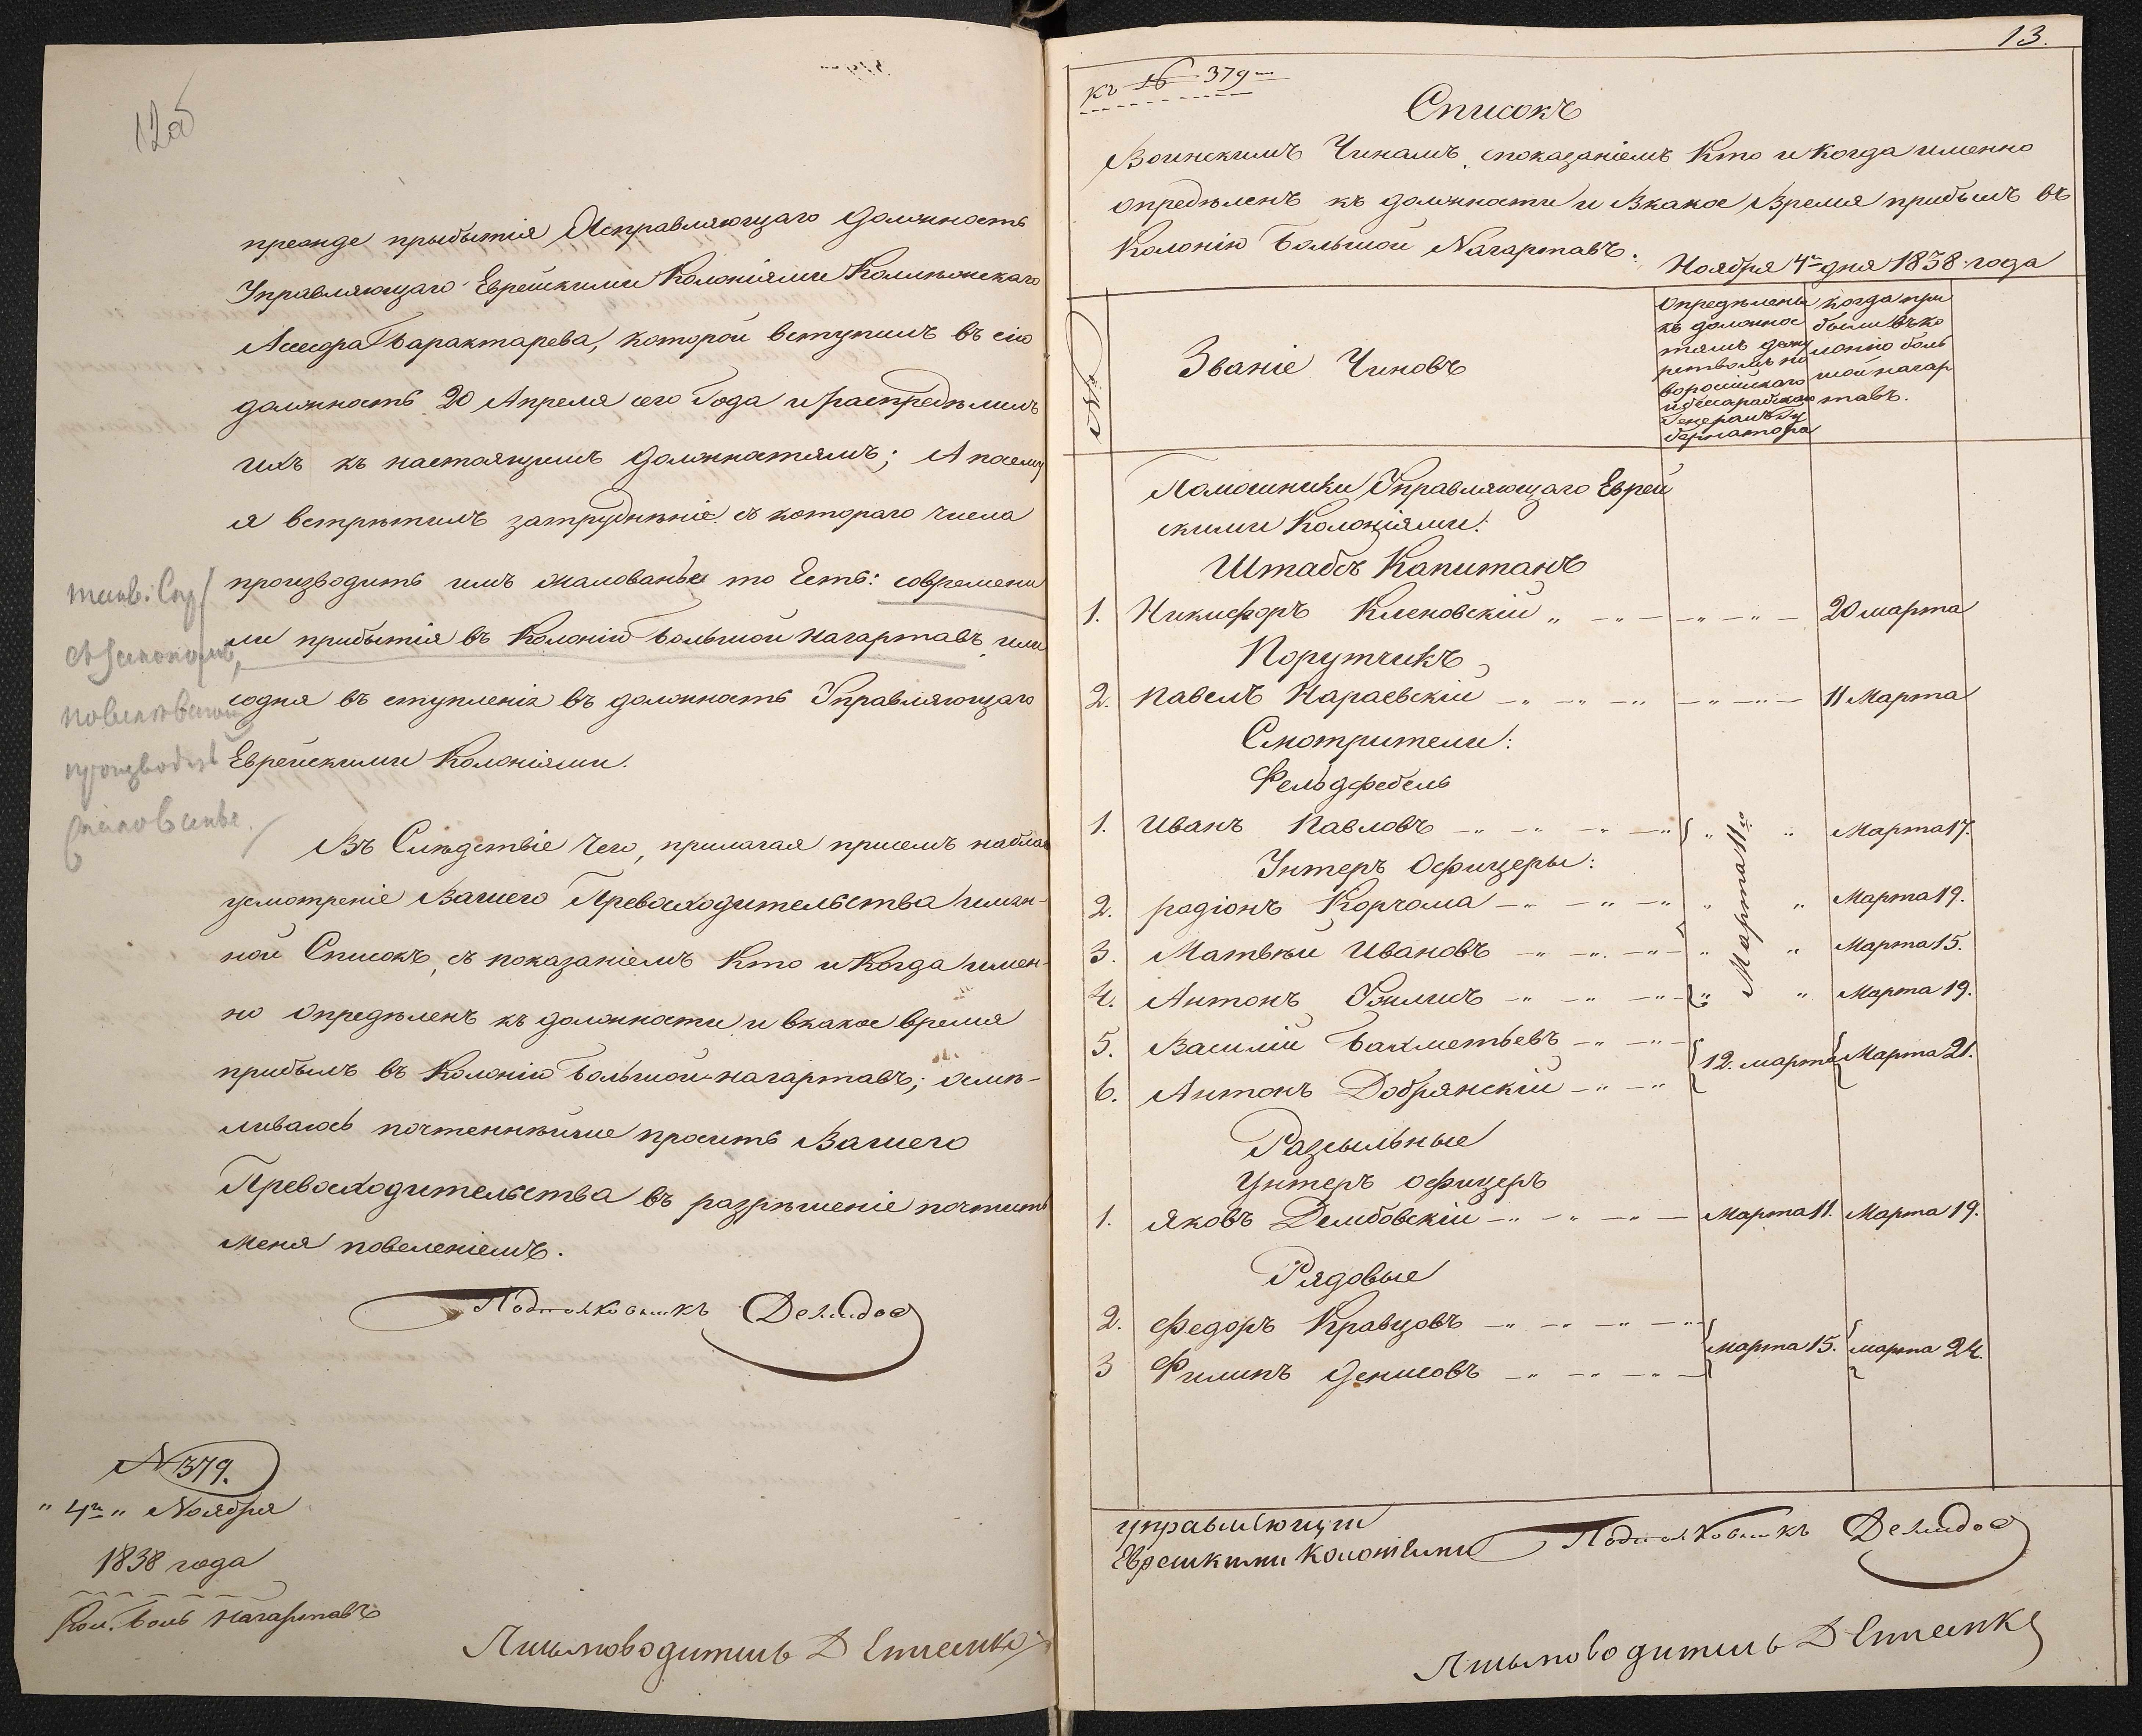 прежде прыбытія Исправляющаго Должность
Управляющаго Еврейскими Колоніями Колежскаго
Асесора Барактарева, которой вступилъ въ сію
должность 20 Апреля сего Года и распредѣлилъ
ихъ къ настоящимъ Должностямъ; А посему
я встрѣтилъ затрудненіе съ котораго числа
производить имъ жалованье то Есть: современи
ли прибытія въ Колонію Большой Нагартавъ, или
содня въ ступленія въ должность Управляющаго
Еврейскими Колоніями.
производить
жалованье
Въ Слѣдствіе Чего, прилагая присемъ на благо
усмотреніе Вашего Превосходительства имян-
ной Списокъ, съ показаніемъ Кто и Когда имен-
но Опредѣленъ къ должности и вкакое время
прибылъ въ Колонію Большой Нагартавъ; осмѣ-
ливаюсь почтеннѣйше просить Вашего
Превосходительства въ разрѣшеніе почтить
меня повеленіемъ.
Подполковникъ Демидов
№ 379.
" 4го " Ноября
1838 года
Кол. Боль Нагартавъ
Письмоводитель Д
13.
къ № 379му
Списокъ
Воинскимъ Чинамъ, споказаніемъ Кто и Когда именно
опредѣленъ къ должности и Вкакое Время прибылъ въ
Колонію Большой Нагартавъ.
Ноября 4го дня 1838 года
№
Званіе Чиновъ
Опредѣлены
къ должнос
тямъ
но
воросійскаго
и бессарабскаго
Генералъ Гу
бернатора
когда при
были въ ко
лонію боль
шой нагар
тавъ.
Помошники Управляющаго Еврей
скими Колоніями:
Штабсъ Капитанъ
1. Никифоръ Кленовскій 20 марта
Поручикъ
2. Павелъ Караевскій 11 Марта
Смотрители:
Фельдфебель
1. Иванъ Павловъ Марта 17.
Марта 11го
Унтеръ Офицеры:
2. радіонъ Корчома Марта 19.
3. Матвѣй Ивановъ Марта 15.
4. Антонъ Марта 19.
5. Василій Бахметьевъ
12. марта Марта 21.
6. Антонъ Добрянскій
Разсыльные
Унтеръ офицеръ
1. Яковъ Дембовскій Марта 11. Марта 19.
Рядовые
2. Федоръ Кравцовъ
марта 15. марта 24.
3 Филипъ Денисовъ
управляющій
Еврейскими колоніями Подполковникъ Демидов
Письмоводитель Д